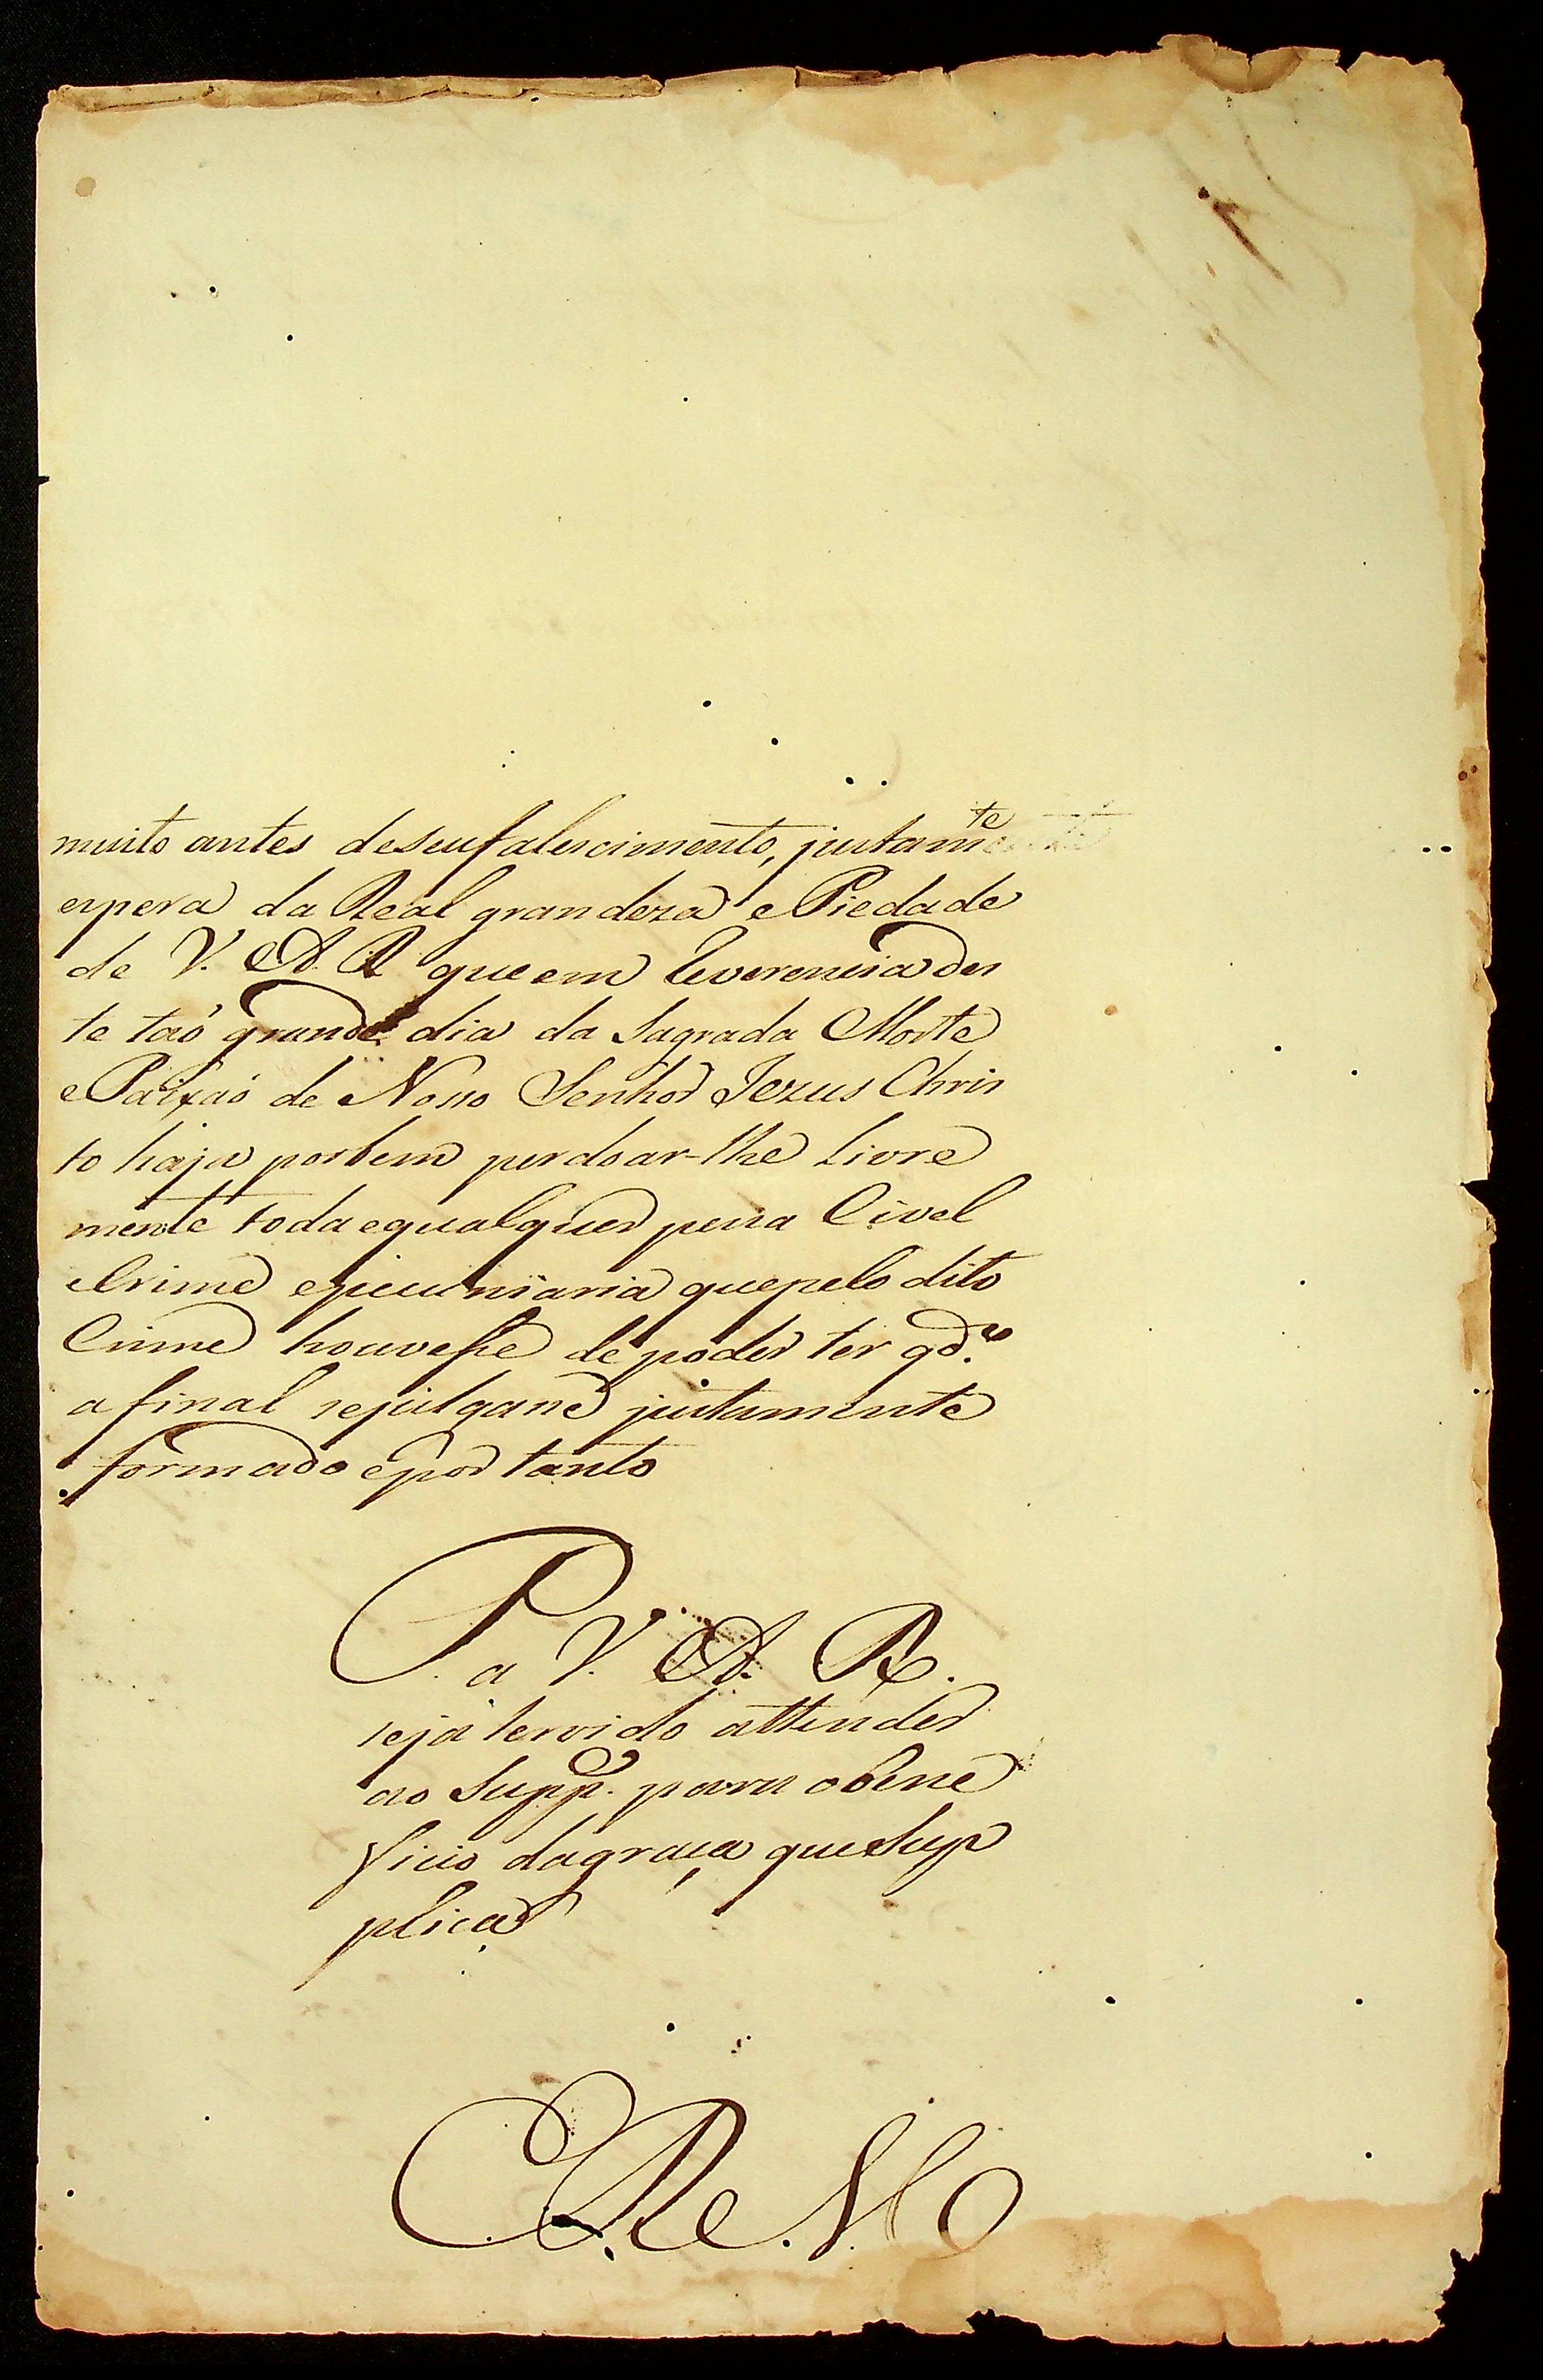 muito antes deseufalescimento, justam.te
espera da Real grandeza e Piedade
de V. A. R que em Reverencia des
te taõ grande dia da Sagrada Morte
e Paixaõ de Nosso Senhor Jezus Chris
to haja porbem perdoar-lhe Livre
mente toda equalquer pena Civel
eCrime epicuniaria quepelo dito
Crime houvesse de poder ter qd.º
afinal sejulgasse justamente
formado epor tanto
P. a V. A. R.
seja servido attender
ao Supp.e para obene
ficio dagraça queSup
plica
E. R. Mce